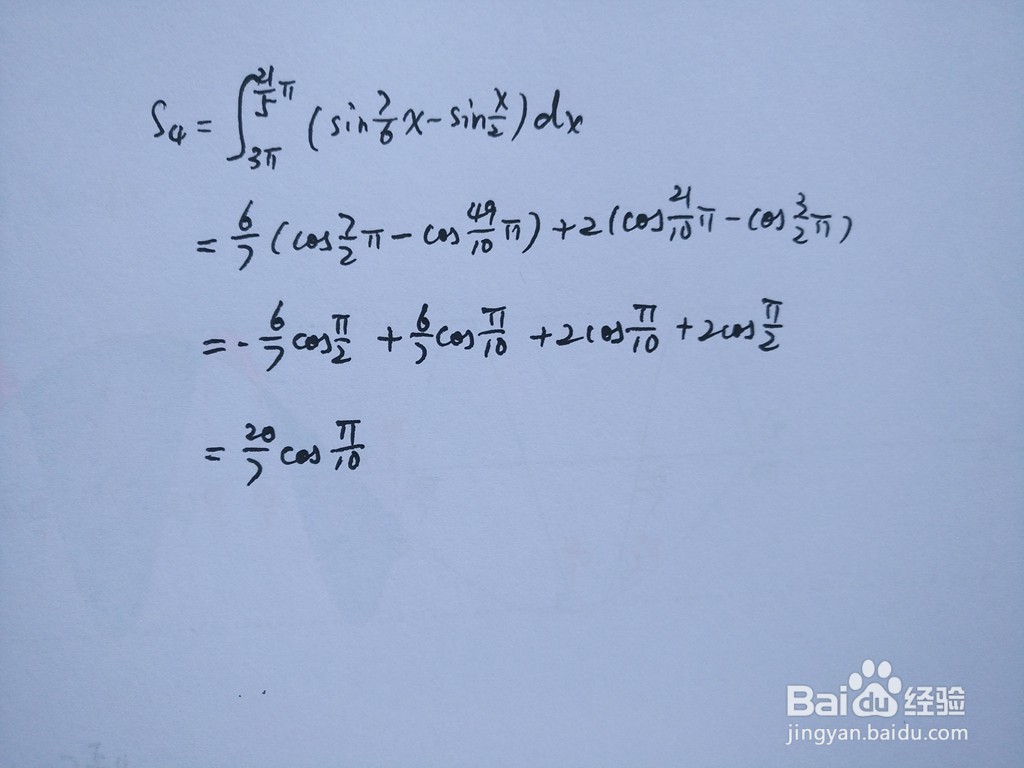 S₄ = ∫_{3π}^{21/5 π} (sin 7/6 x - sin x/2) dx
= 6/7 (cos 7/2 π - cos 49/10 π) + 2(cos 21/10 π - cos 3/2 π)
= - 6/7 cos π/2 + 6/7 cos π/10 + 2cos π/10 + 2cos π/2
= 20/7 cos π/10
Baidu经验
jingyan.baidu.com